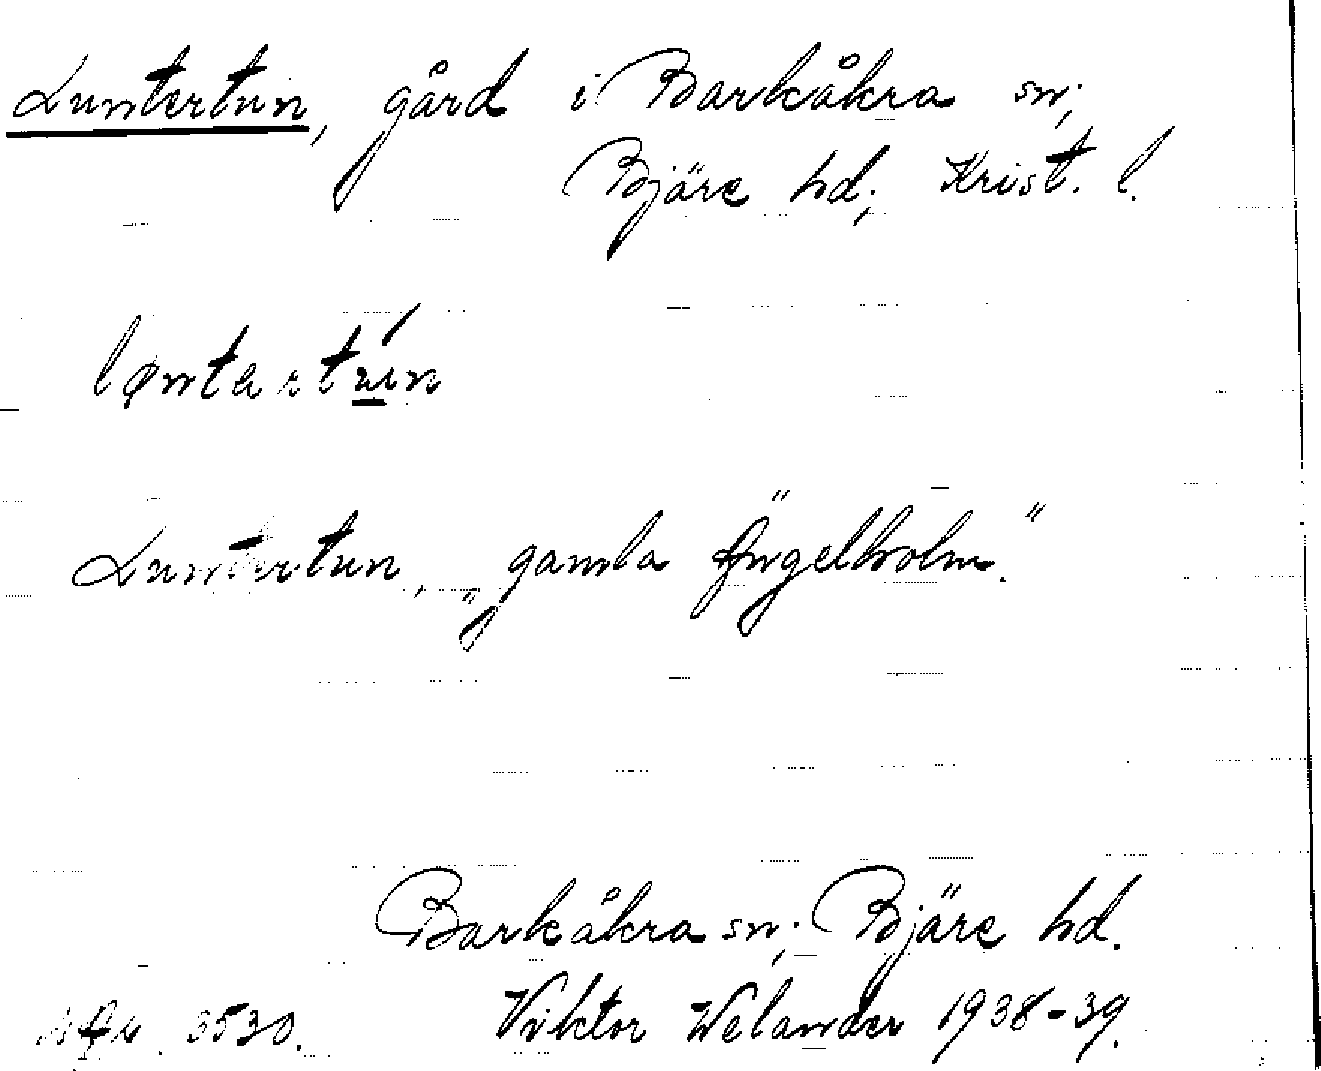 Luntertun, gård i Barkåkra sn;
Bjäre hd; Krist. l.
løntertún
Luntertun, "gamla Ängelholm."
Barkåkra sn; Bjäre hd.
3530. Viktor Welander 1938-39.